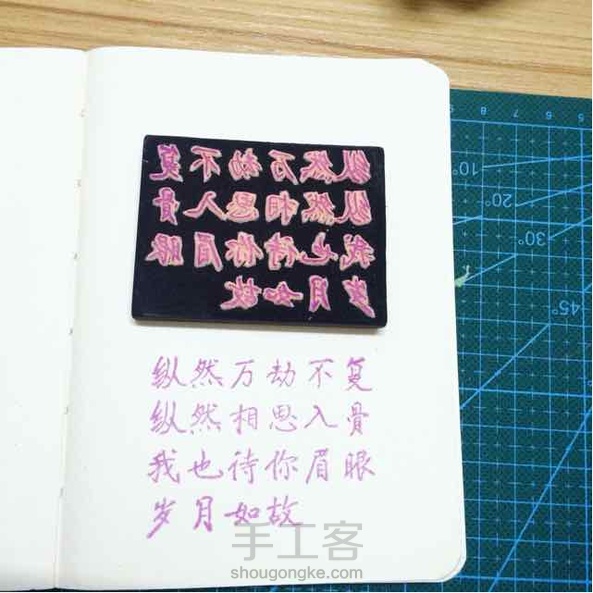 纵然万劫不复
纵然相思入骨
我也待你眉眼
岁月如故
纵然万劫不复
纵然相思入骨
我也待你眉眼
岁月如故
手工客
shougongke.com
10°
20°
30°
45°